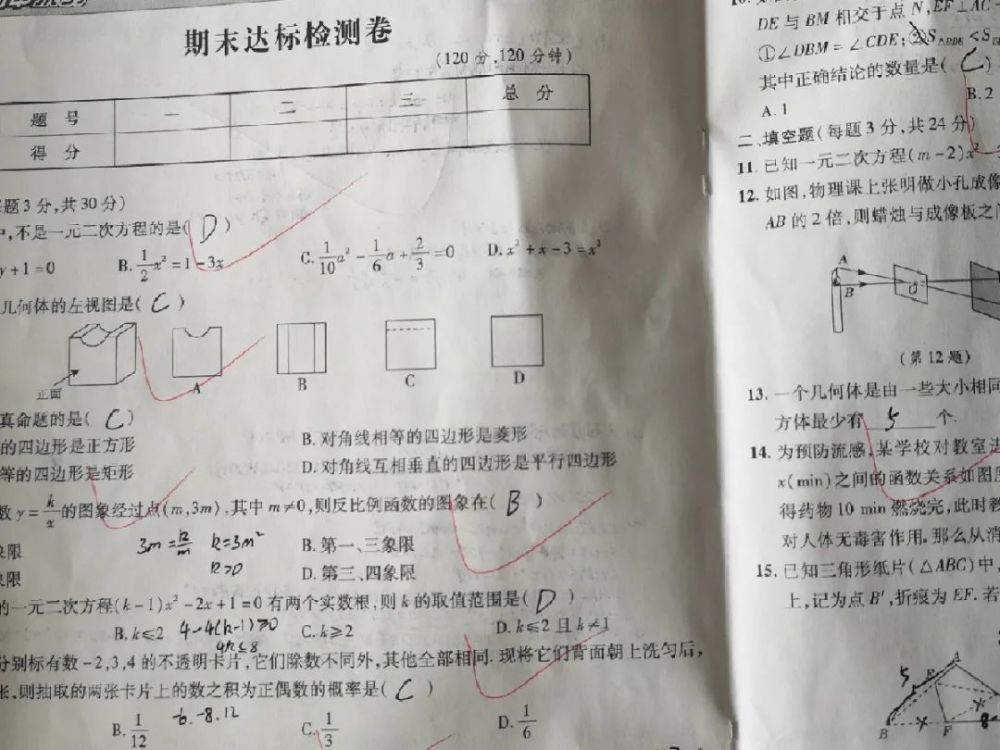 期末达标检测卷
(120分,120分钟)
题号 一 二 三 总分
得分
题3分,共30分)
中,不是一元二次方程的是( D )
y+1=0 B. 1/2 x²=1-3x C. 1/10 a²-1/6 a+2/3=0 D. x²+x-3=x²
几何体的左视图是( C )
正面 A B C D
真命题的是( C )
的四边形是正方形 B. 对角线相等的四边形是菱形
等的四边形是矩形 D. 对角线互相垂直的四边形是平行四边形
数 y=k/x 的图象经过点(m,3m),其中 m≠0,则反比例函数的图象在( B )
象限 3m=k/m k=3m² B. 第一、三象限
象限 k>0 D. 第三、四象限
的一元二次方程(k-1)x²-2x+1=0 有两个实数根,则 k 的取值范围是( D )
B. k≤2 4-4(k-1)≥0 C. k≥2 D. k≤2 且 k≠1
4k≤8
分别标有数-2,3,4 的不透明卡片,它们除数不同外,其他全部相同.现将它们背面朝上洗匀后,
张,则抽取的两张卡片上的数之积为正偶数的概率是( C )
B. 1/12 -6.-8.12 C. 1/3 D. 1/6
DE 与 BM 相交于点 N,EF⊥AC
①∠DBM=∠CDE;②S△BDE<S
其中正确结论的数量是( C )
A. 1 B. 2
二、填空题(每题3分,共24分)
11. 已知一元二次方程(m-2)x²
12. 如图,物理课上张明做小孔成像
AB 的 2 倍,则蜡烛与成像板之间
A
B O
(第12题)
13. 一个几何体是由一些大小相同
方体最少有 5 个.
14. 为预防流感,某学校对教室进
x(min)之间的函数关系如图所
得药物 10 min 燃烧完,此时教
对人体无毒害作用.那么从消
15. 已知三角形纸片(△ABC)中,
上,记为点 B′,折痕为 EF.若
5 E A
B F 8